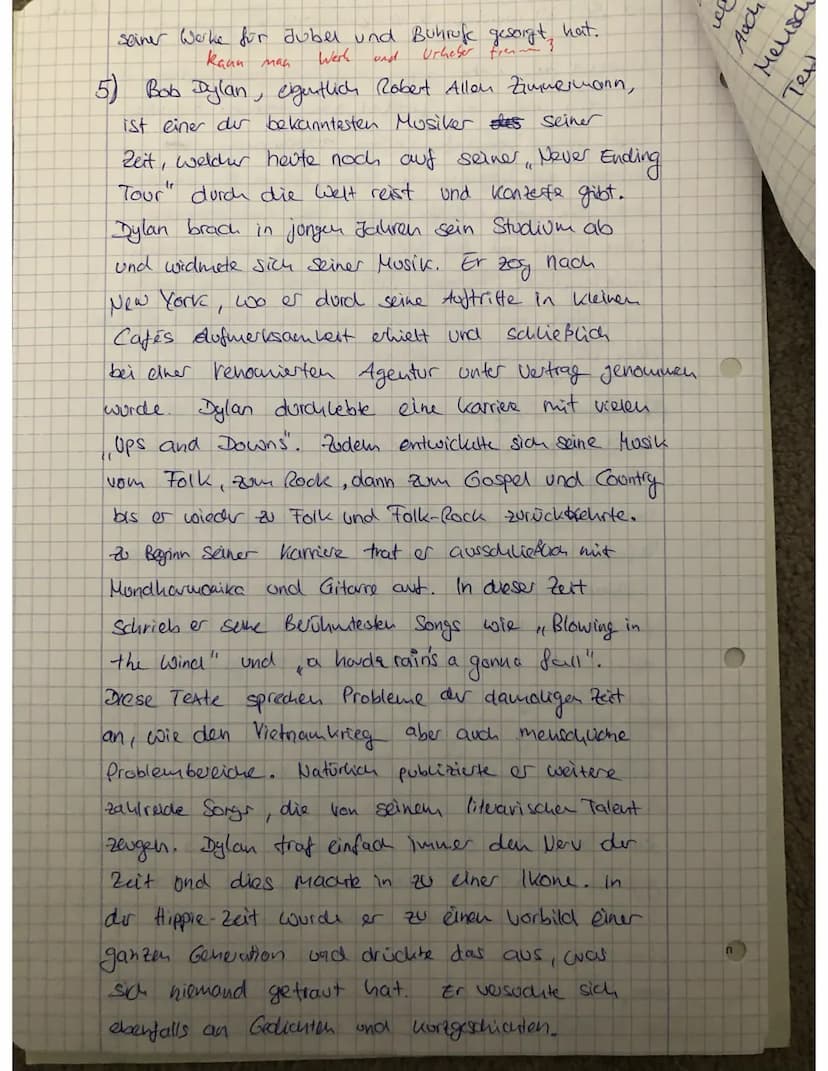 seiner Werke für Jubel und Buhrufe gesorgt hat.
kann man Werk und Urheber trennen?
5) Bob Dylan, eigentlich Robert Allen Zimmermann,
ist einer der bekanntesten Musiker seiner
Zeit, welcher heute noch auf seiner „Never Ending
Tour" durch die Welt reist und Konzerte gibt.
Dylan brach in jungen Jahren sein Studium ab
und widmete sich seiner Musik. Er zog nach
New York, wo er durch seine Auftritte in kleinen
Cafés Aufmerksamkeit erhielt und schließlich
bei einer renomierten Agentur unter Vertrag genommen
wurde. Dylan durchlebte eine Karriere mit vielen
„Ups and Downs". Zudem entwickelte sich seine Musik
vom Folk, zum Rock, dann zum Gospel und Country
bis er wieder zu Folk und Folk-Rock zurückkehrte.
Zu Beginn seiner Karriere trat er ausschließlich mit
Mundharmonika und Gitarre auf. In dieser Zeit
schrieb er seine Berühmtesten Songs wie „Blowing in
the wind" und „a harde rain's a gonna fall".
Diese Texte sprechen Probleme der damaligen Zeit
an, wie den Vietnamkrieg aber auch menschliche
Problembereiche. Natürlich publizierte er weitere
zahlreiche Songs, die von seinem literarischen Talent
zeugen. Dylan traf einfach immer den Nerv der
Zeit und dies machte in zu einer Ikone. In
der Hippie-Zeit wurde er zu einen Vorbild einer
ganzen Generation und drückte das aus, was
sich niemand getraut hat. Er versuchte sich
ebenfalls an Gedichten und Kurzgeschichten.
Auch
Mensch